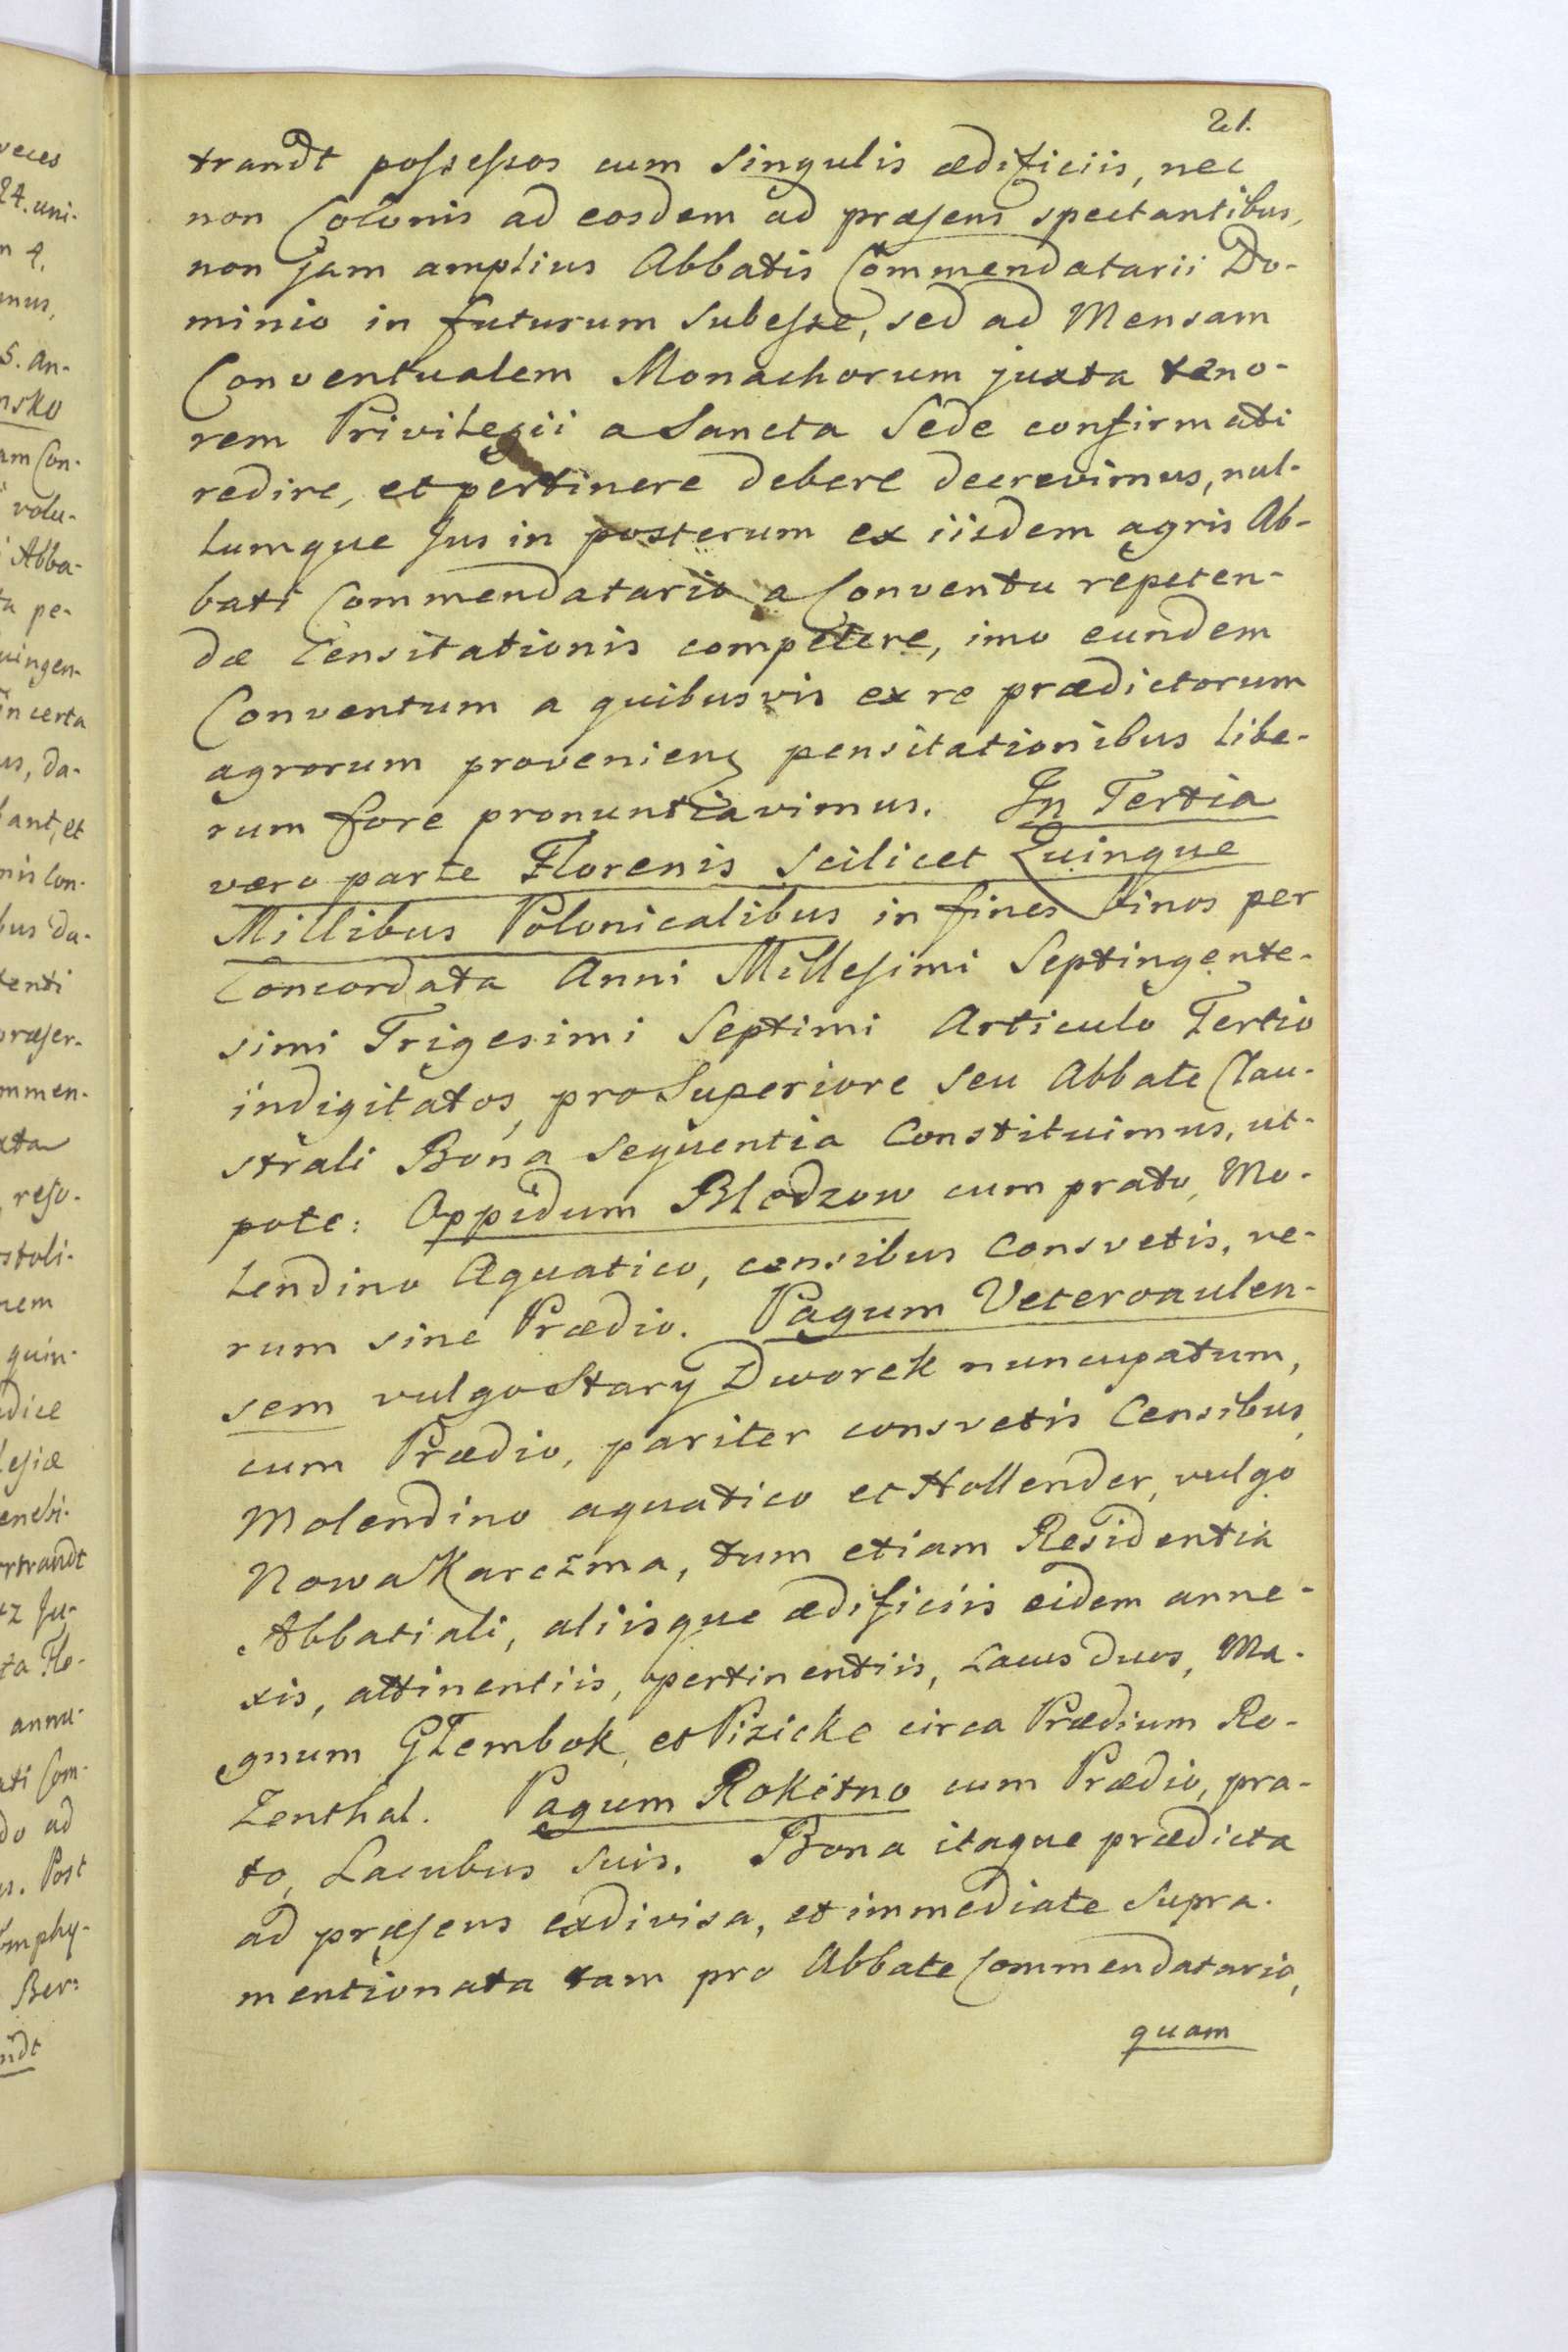 21.
trandt possessos cum singulis ædificiis, nec
non Colonis ad eosdem ad præsens spectantibus,
non jam amplius Abbatis Commendatarii Do-
minio in futurum subesse, sed ad Mensam
Conventualem Monachorum juxta teno-
rem Privilegii a Sancta Sede confirmati
redire, et pertinere debere decrevimus, nul-
lumque Jus in posterum ex iisdem agris Ab-
bati Commendatario a Conventu repeten-
dæ Censitationis competere, imo eundem
Conventum a quibusvis ex re prædictorum
agrorum provenien pensitationibus libe-
rum fore pronuntiavimus. In Tertia
vero parte Florenis scilicet Quinque
Millibus Polonicalibus in fines binos per
Concordata Anni Millesimi Septingente-
simi Trigesimi Septimi Articulo Tertio
indigitatos, pro Superiore seu Abbate Clau-
strali Bona sequentia Constituimus, ut-
pote: Oppidum Bledzow cum prato, Mo-
lendino Aquatico, censibus Consvetis, ve-
rum sine Prædio. Pagum Veteroaulen-
sem vulgo Stary Dworek nuncupatum,
cum Prædio, pariter consvetis Censibus,
Molendino aquatico et Hollender, vulgo
Nowa Karczma, tum etiam Residentia
Abbatiali, aliisque ædificiis eidem anne-
xis, attinentiis, pertinentiis, Lacus duos, Ma-
gnum Glembok, et Pizicke circa Prædium Ro-
zenthal. Pagum Rokitno cum Prædio, pra-
to, Lacubus suis. Bona itaque prædicta
ad præsens exdivisa, et immediate supra-
mentionata tam pro Abbate Commendatario,
quam
veces
24. uni-
n 4.
mus,
5. an-
nsko
am Con-
volu-
Abba-
ta pe-
uingen-
incerta
us, da-
bant, et
nis Con-
bus da-
tenti
præser-
ommen-
xta
reso-
stoli-
nem
quin-
dice
lesiæ
enesi-
rtrandt
tz Ju-
ta Flo-
annu-
ati Com-
do ad
us. Post
Emphy-
Ber:
ndt